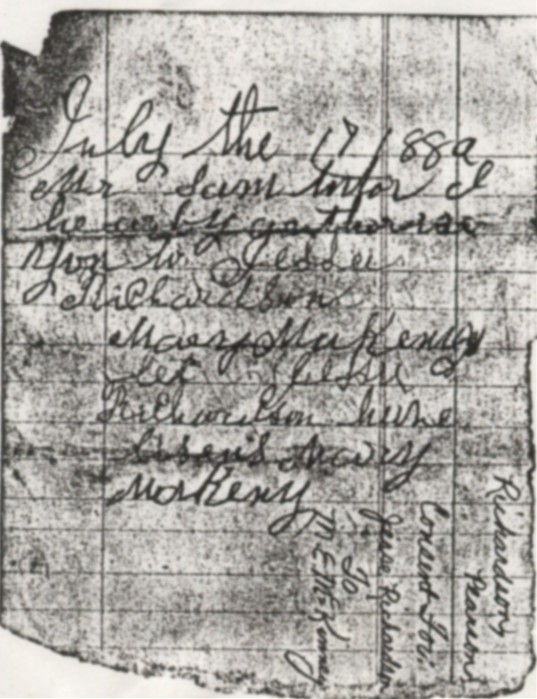 July the 17 188
Mr Sam I
hearby
you to Jessee
Richardson
Mary McKeny
let Jessee
Richardson have
Lisens Mary
McKeny
Richardson
Pearson
Consent for
Jesse Richardson
To
M E McKenney